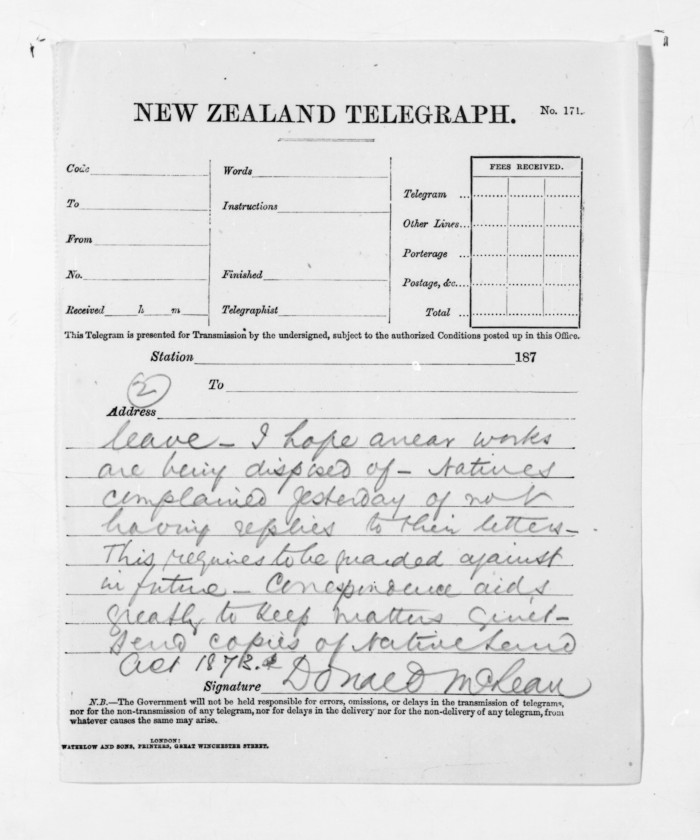 NEW ZEALAND TELEGRAPH. No. 171.
FEES RECEIVED.
Code
Words
Telegram ...
To
Instructions
Other Lines...
From
Porterage ...
No.
Finished
Postage, &c....
Received h m
Telegraphist
Total ...
This Telegram is presented for Transmission by the undersigned, subject to the authorized Conditions posted up in this Office.
Station 187
2 To
Address
leave – I hope arrear works
are being disposed of – Natives
complained yesterday of not
having replies to their letters –
This requires to be guarded against
in future – Correspondence aids
greatly to keep matters quiet –
Send copies of Native Land
Act 1873.
Signature Donald McLean
N.B.—The Government will not be held responsible for errors, omissions, or delays in the transmission of telegrams,
nor for the non-transmission of any telegram, nor for delays in the delivery nor for the non-delivery of any telegram, from
whatever causes the same may arise.
LONDON:
WATERLOW AND SONS, PRINTERS, GREAT WINCHESTER STREET.